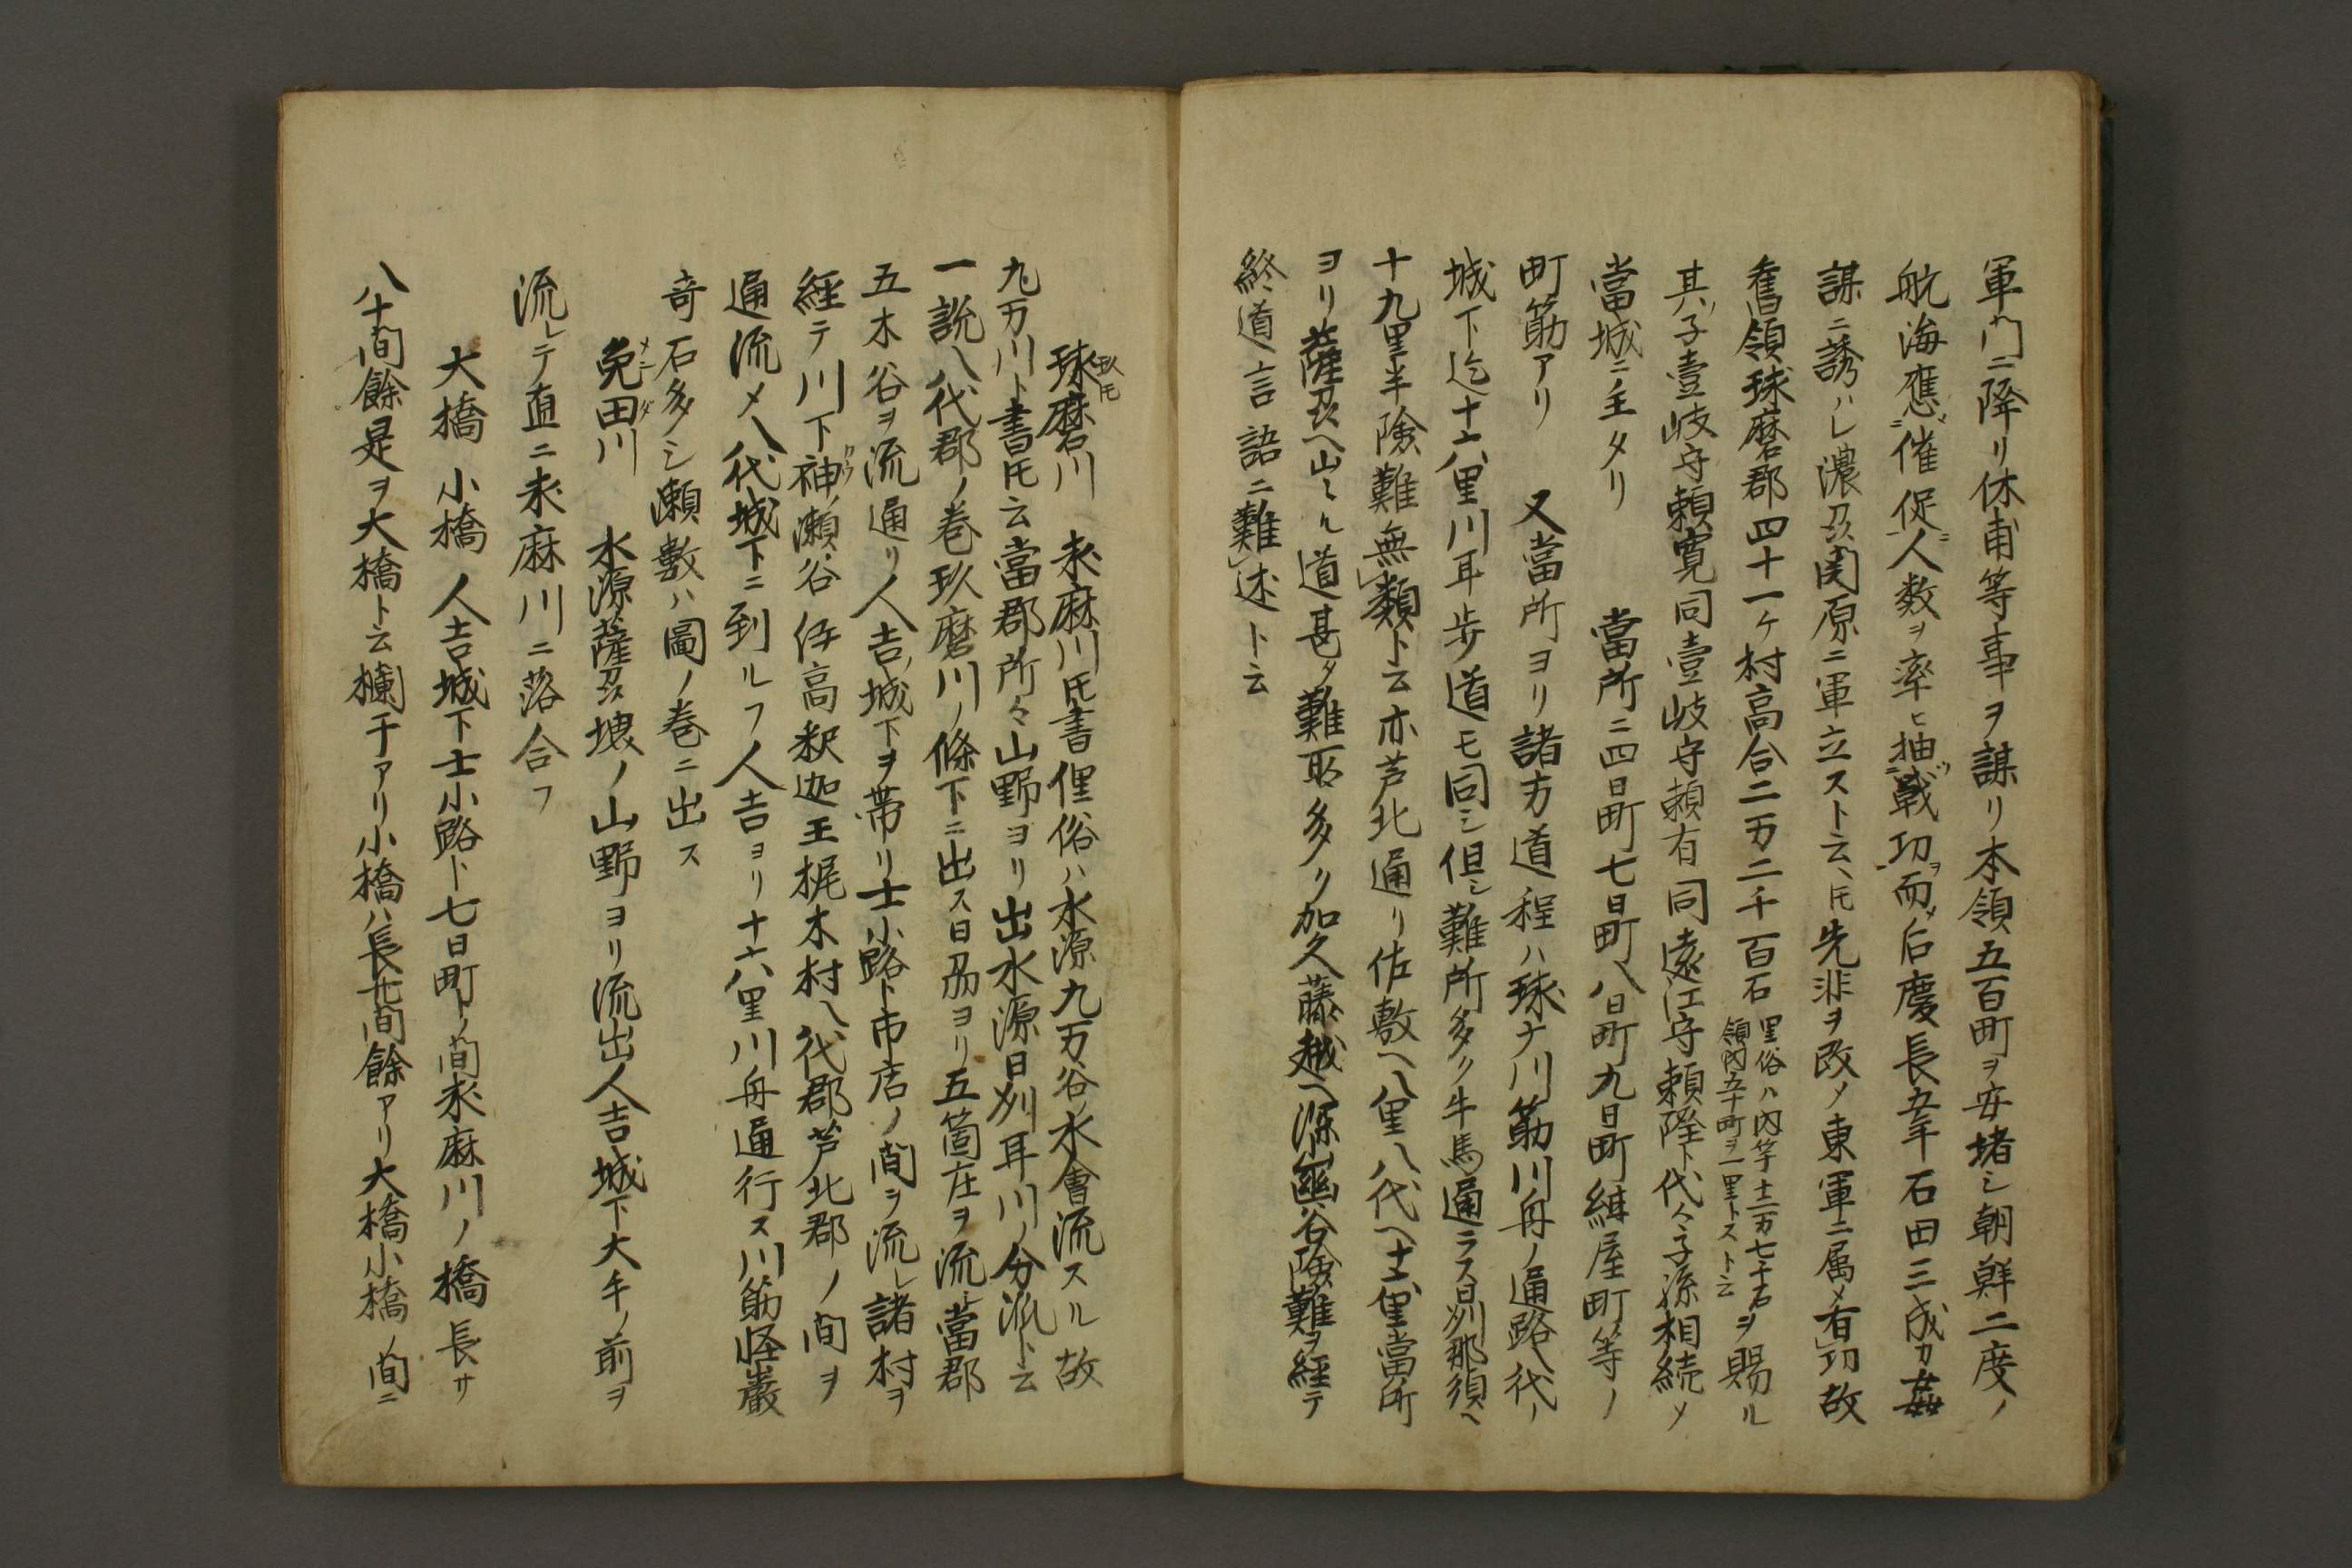 軍門ニ降リ休甫等事ヲ謀リ本領五百町ヲ安堵シ朝鮮二度ノ
航海應催促人数ヲ率ヒ抽戦功ヲ而〆后慶長五年石田三成カ姦
謀ニ誘ハレ濃刕関原ニ軍立スト云、𪜈先非ヲ改メ東軍ニ属〆有功故
舊領球磨郡四十一ケ村高合二万二千百石里俗ハ内竿十二万七千石
領内五十町ヲ一里トスト云ヲ賜ル
其ノ子壹岐守頼寛同壹岐守頼有同遠江守頼隆ト代々子孫相続〆
當城ニ主タリ 當所ニ四日町七日町八日町九日町紺屋町等ノ
町筋アリ 又當所ヨリ諸方道程ハ球ナ川筋川舟ノ通路八代ノ
城下迄十六里川耳歩道モ同シ但シ難所多ク牛馬通ラス日刕那須ヘ
十九里半險難無類ト云亦芦北通リ佐敷ヘ八里八代ヘ十六里當所
ヨリ薩刕ヘ山ミル道甚タ難所多クリ加久藤越ヘ深山幽谷險難ヲ経テ
終道言語ニ難述ト云
球磨川 玖𪜈 求麻川𪜈書俚俗ハ水源九万谷ノ水會流スル故
九万川ト書𪜈云當郡所々山野ヨリ出水源日刕耳川ノ分派ト云
一説八代郡ノ巻玖磨川ノ條下ニ出ス日刕ヨリ五箇庄ヲ流レ當郡
五木谷ヲ流通リ人吉ノ城下ヲ帯リ士小路ト市店ノ間ヲ流レ諸村ヲ
経テ川下神ノ瀬谷伊高釈迦王梶木村八代郡芦北郡ノ間ヲ
通流〆八代城下ニ到ルフ人吉ヨリ十六里川舟通行ス川筋怪巌
奇石多シ瀬數ハ圖ノ巻ニ出ス
免田川 メンダ 水源薩刕境ノ山野ヨリ流出人吉城下大手ノ前ヲ
流レテ直ニ求麻川ニ落合フ
大橋 小橋 人吉城下士小路ト七日町トノ間求麻川ノ橋長サ
八十間餘是ヲ大橋ト云欄干アリ小橋ハ長廿間餘アリ大橋小橋ノ間ニ